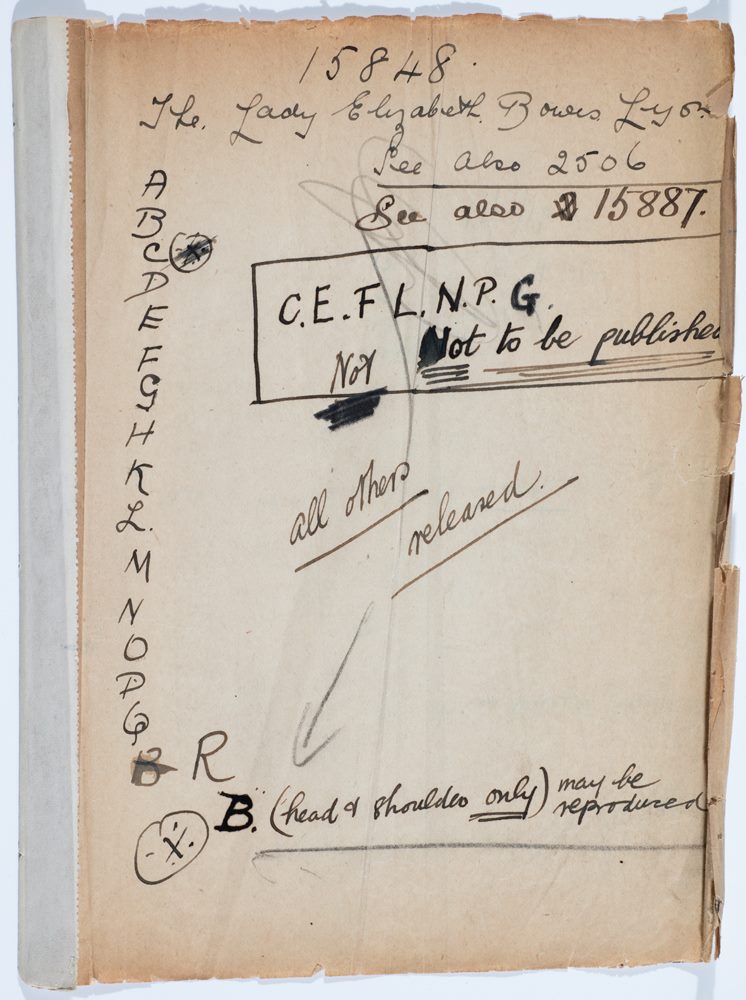 15848.
The. Lady Elizabeth. Bowes Lyon
See also 2506
See also 15887.
A
B
C
D
E
F
G
H
K
L.
M
N
O
P
Q
B R
C.E.F L.N.P.G.
Not Not to be published
all others
released.
B. (head & shoulders only) may be
reproduced
X